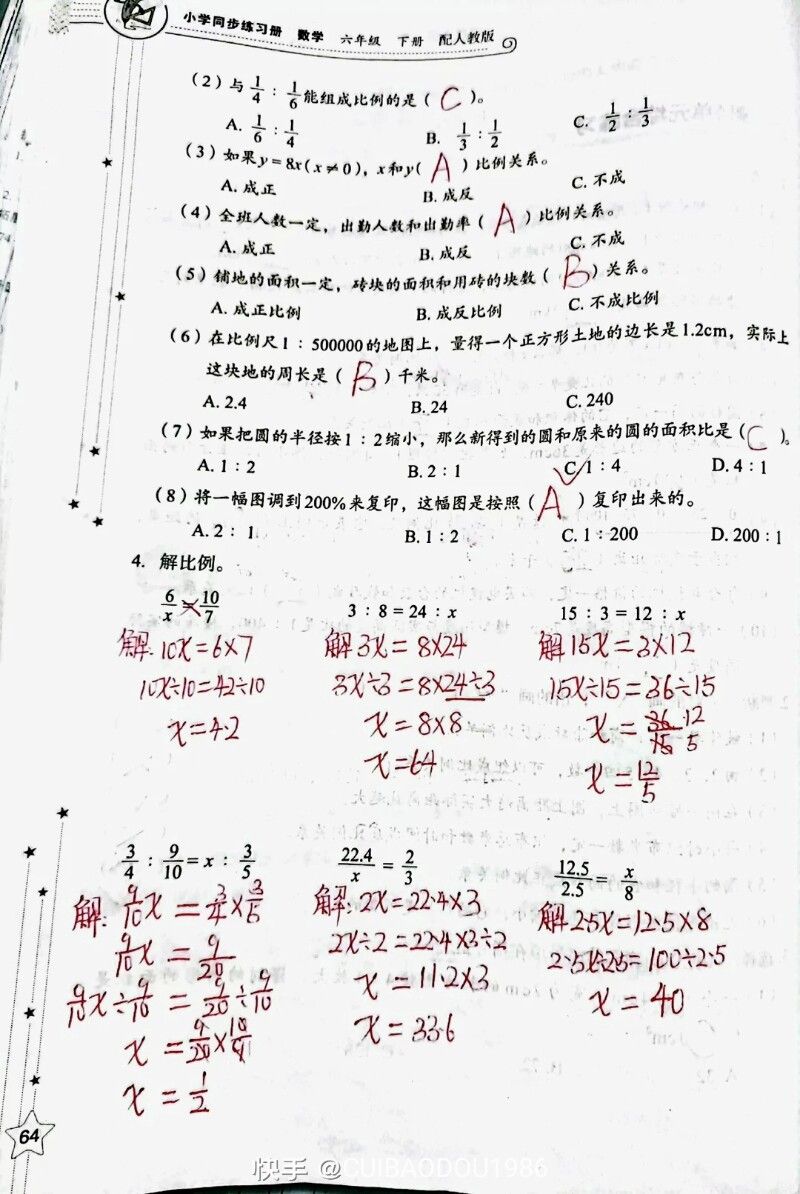 小学同步练习册 数学 六年级 下册 配人教版
(2)与1/4 : 1/6能组成比例的是( C )。
A. 1/6 : 1/4 B. 1/3 : 1/2 C. 1/2 : 1/3
(3)如果y=8x(x≠0),x和y( A )比例关系。
A. 成正 B. 成反 C. 不成
(4)全班人数一定,出勤人数和出勤率( A )比例关系。
A. 成正 B. 成反 C. 不成
(5)铺地的面积一定,砖块的面积和用砖的块数( B )关系。
A. 成正比例 B. 成反比例 C. 不成比例
(6)在比例尺1 : 500000的地图上,量得一个正方形土地的边长是1.2cm,实际上
这块地的周长是( B )千米。
A. 2.4 B. 24 C. 240
(7)如果把圆的半径按1 : 2缩小,那么新得到的圆和原来的圆的面积比是( C )。
A. 1 : 2 B. 2 : 1 C. 1 : 4 D. 4 : 1
(8)将一幅图调到200%来复印,这幅图是按照( A )复印出来的。
A. 2 : 1 B. 1 : 2 C. 1 : 200 D. 200 : 1
4. 解比例。
6/x = 10/7 3 : 8 = 24 : x 15 : 3 = 12 : x
解: 10x=6×7 解 3x=8×24 解 15x=3×12
10x÷10=42÷10 3x÷3=8×24÷3 15x÷15=36÷15
x=4.2 x=8×8 x=36/15 12/5
x=64 x=12/5
3/4 : 9/10 = x : 3/5 22.4/x = 2/3 12.5/2.5 = x/8
解: 9/10x=3/4×3/5 解: 2x=22.4×3 解 2.5x=12.5×8
9/10x=9/20 2x÷2=22.4×3÷2 2.5x÷2.5=100÷2.5
9/10x÷9/10=9/20÷9/10 x=11.2×3 x=40
x=9/20×10/9 x=33.6
x=1/2
64
快手 @CUIBAODOU1986